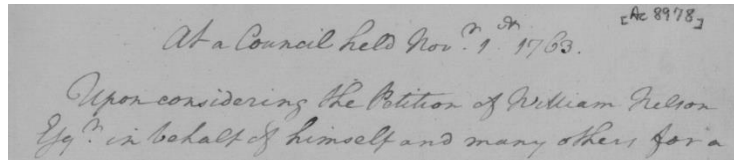 [Ac 8978]
At a Council held Novr. 1st 1763.
Upon considering the Petition of William Nelson
Esqr. in behalf of himself and many others for a